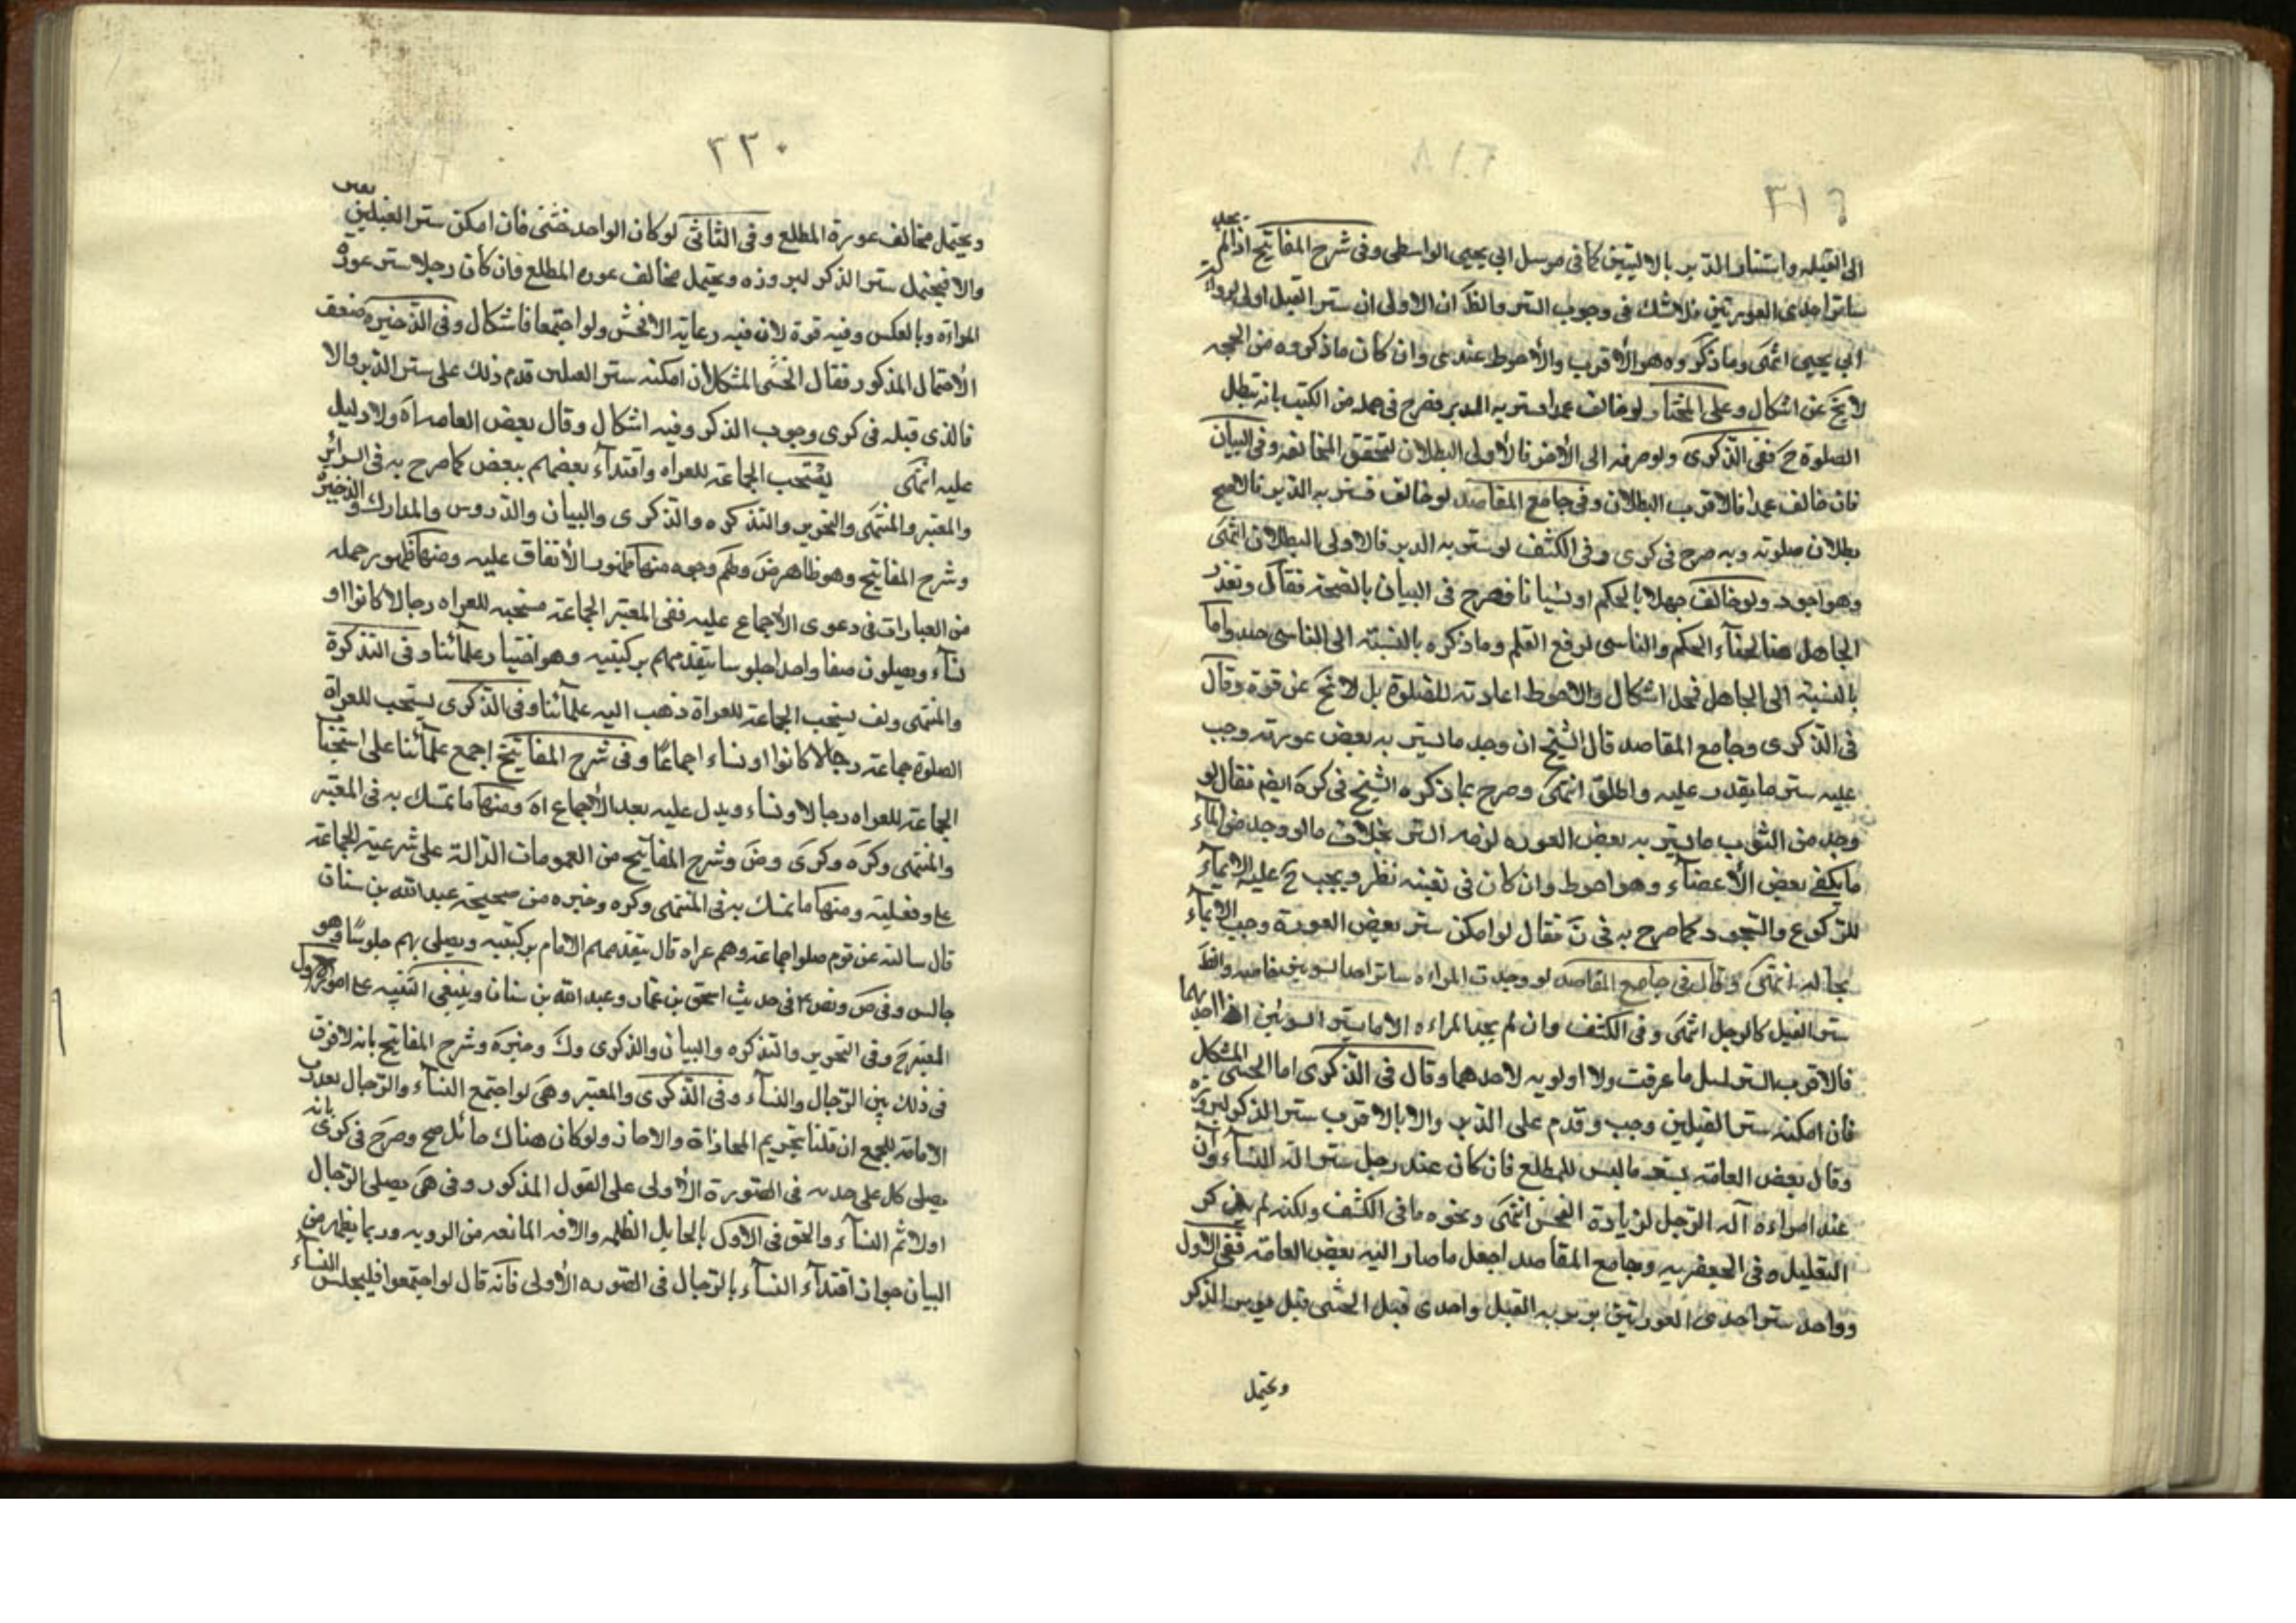 ٣١٩
الى القبله واستتار الدبر بالاليتين كما فى مرسل ابي يحيى الواسطى وفى شرح المفاتيح اذا لم يجد
ساترا احدى العورتين فلا شك فى وجوب الستر والظ ان الاولى ان ستر القبل اولى لرواية
ابي يحيى انتهى وما ذكروه هو الأقرب والأحوط عندى وان كان ما ذكروه من الحجه
لا يخ عن اشكال وعلى المختار لو خالف عمدا ستر به الدبر فصرح فى جمله من الكتب بانه تبطل
الصلوة ح ففى الذكرى ولو صرفه الى الأخر فالأولى البطلان لتحقق المخالفه وفى البيان
فان خالف عمدا فالاقرب البطلان وفى جامع المقاصد لو خالف فستر به الدبر فالاصح
بطلان صلوته وبه صرح فى كرى وفى الكشف لو ستر به الدبر فالاولى البطلان انتهى
وهو اجود ولو خالف جهلا بالحكم او نسيانا فصرح فى البيان بالصحة فقال وتعذر
الجاهل هنا لخفآء الحكم والناسى لرفع القلم وما ذكره بالنسبته الى الناسى جيد واما
بالنسبه الى الجاهل فمحل اشكال والاحوط اعادته للصلوة بل لا يخ عن قوة وقال
فى الذكرى وجامع المقاصد قال الشيخ ان وجد ما يستر به بعض عورته وجب
عليه ستر ما يقدر عليه واطلق انتهى وصرح بما ذكره الشيخ فى كره ايضم فقال لو
وجد من الثوب ما يستر به بعض العوره لزمه الستر بخلاف ما لو وجد من المآء
ما يكفى بعض الأعضآء وهو احوط وان كان فى تعينه نظر ويجب ح عليه الايمآء
للركوع والسجود كما صرح به فى ن فقال لو امكن ستر بعض العورة وجب الايمآء
بحاله انتهى وقال فى جامع المقاصد لو وجدت المراه ساترا احد السوئين خاصه والظ
ستر القبل كالرجل انتهى وفى الكشف وان لم يجد المراءه الا ما يستر السوئين او احديهما
فالاقرب الستر لما عرفت ولا اولويه لاحدهما وقال فى الذكرى اما الخنثى المشكل
فان امكنه ستر القبلين وجب وقدم على الدبر والا بالاقرب ستر الذكر لبروزه
وقال بعض العامه يستر ما ليس للمطلع فان كان عند رجل ستر الة النسآء وان
عند امراءه آله الرجل لزيادة الفحش انتهى ونحوه ما فى الكشف ولكنه لم يذكر
التعليل وفى الجعفريه وجامع المقاصد اجعل ما صار اليه بعض العامه ففى الأول
وواحد ستر احدى العورتين يوربه القبل واحدى قبل الخنثى
ويحتمل
٣٣٠
ويحتمل مخالف عورة المطلع وفى الثانى لو كان الواحد خنثى فان امكن ستر القبلين
والا فيحتمل ستر الذكر لبروزه ويحتمل مخالف عوره المطلع فان كان رجلا ستر عورة
المراة وبالعكس وفيه قوة لان فيه رعاية الافحش ولو اجتمعا فاشكال وفى الذخيره ضعف
الأحتمال المذكور فقال الخنثى المشكل ان امكنه ستر القبلين قدم ذلك على ستر الدبر والا
فالذى قبله فى كرى وجوب الذكر وفيه اشكال وقال بعض العامه اه ولا دليل
عليه انتهى يستحب الجماعة للعراه واقتدآء بعضهم ببعض كما صرح به فى السرائر
والمعتبر والمنتهى والتحرير والتذكره والذكرى والبيان والدروس والمدارك والذخيرة
وشرح المفاتيح وهو ظاهر ض ولهم وجوه منها ظهور الأتفاق عليه ومنها ظهور جمله
من العبارات فى دعوى الأجماع عليه ففى المعتبر الجماعة مستحبه للعراه رجالا كانوا او
نسآء ويصلون صفا واحدا جلوسا يتقدمهم بركبتيه وهو اختيار علمآئنا وفى التذكرة
والمنتهى وف يستحب الجماعة للعراة ذهب اليه علمآئنا وفى الذكرى يستحب للعراة
الصلوة جماعة رجالا كانوا او نساء اجماعًا وفى شرح المفاتيح اجمع علمآئنا على استحباب
الجماعة للعراه رجالا ونساء ويدل عليه بعد الأجماع اه ومنها ما تمسك به فى المعتبر
والمنتهى وكره وكرى وض وشرح المفاتيح من العمومات الدالة على شرعية الجماعة
وفضليته ومنها ما تمسك به فى المنتهى وكره وخيره من صحيحة عبدالله بن سنان
قال سالته عن قوم صلوا جماعة وهم عراه قال يتقدمهم الامام بركبتيه ويصلى بهم جلوسًا وهو
جالس وفى ض ونص فى حديث اسحق بن عمار وعبدالله بن سنان وينبغى التنبيه على امور الأول
المعتبر ح وفى التحرير والتذكره والبيان والذكرى وك وخيره وشرح المفاتيح بانه لا فرق
فى ذلك بين الرجال والنسآء وفى الذكرى والمعتبر وهى لو اجتمع النسآء والرجال
الامامة للجمع ان قلنا بتحريم المحاذاة والا جاز ولو كان هناك حائل صح وصرح فى كرى بانه
يصلى كل على حده فى الصورة الأولى على القول المذكور وفى هى يصلى الرجال
اولا ثم النسآء والحق فى الاول بالحايل الظلمه والافه المانعه من الرويه وربما يظهر من
البيان جواز اقتدآء النسآء بالرجال فى الصوره الأولى فانه قال لو اجتمعوا فليجلس النسآء